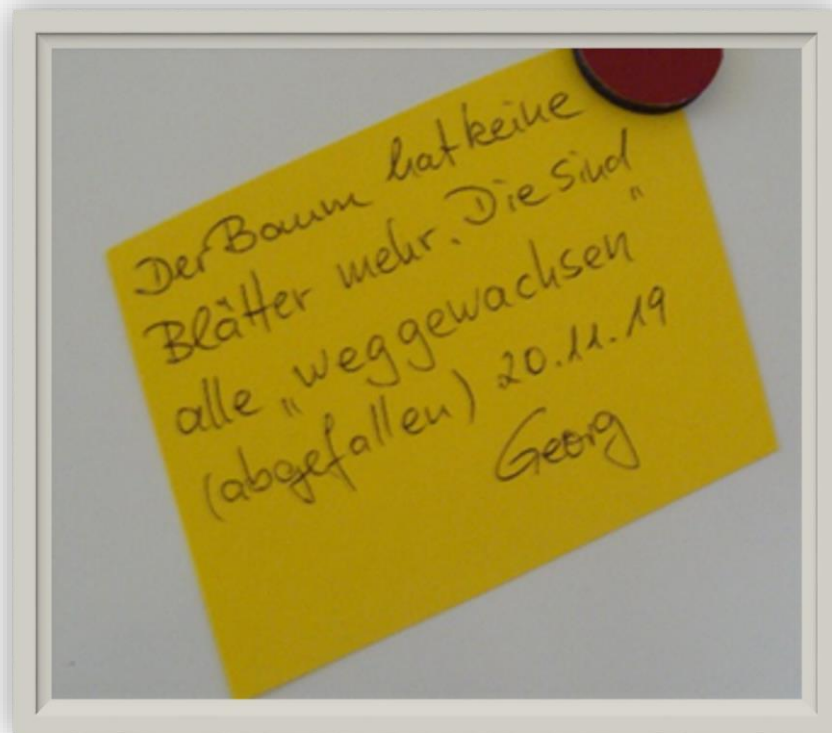 Der Baum hat keine
Blätter mehr. Die sind
alle „weggewachsen"
(abgefallen) 20.11.19
Georg